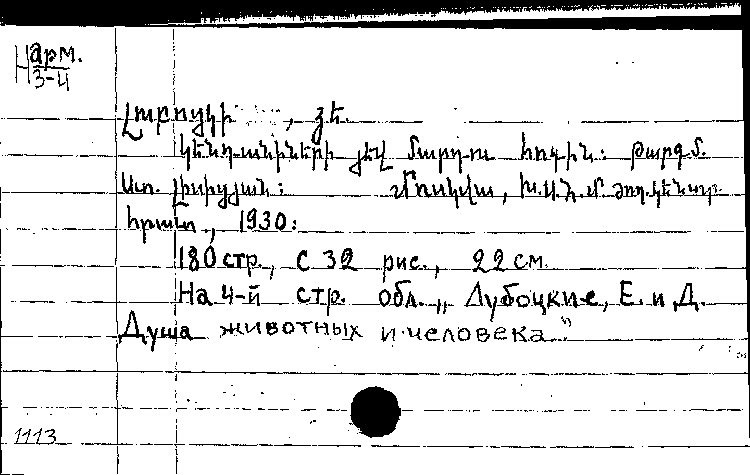 Нарм.
3-4
Լուբոցկի , յե.
կենդանիների յեվ մարդու հոգին: թարգմ.
Ստ. Լիսիցյան: Մոսկվա, Խ.Ս.Հ.Մ. ժող. կենտր.
հրատ., 1930:
180 стр., с 32 рис., 22 см.
На 4-й стр. обл. „Лубоцкие, Е. и Д.
Душа животных и человека"
1113